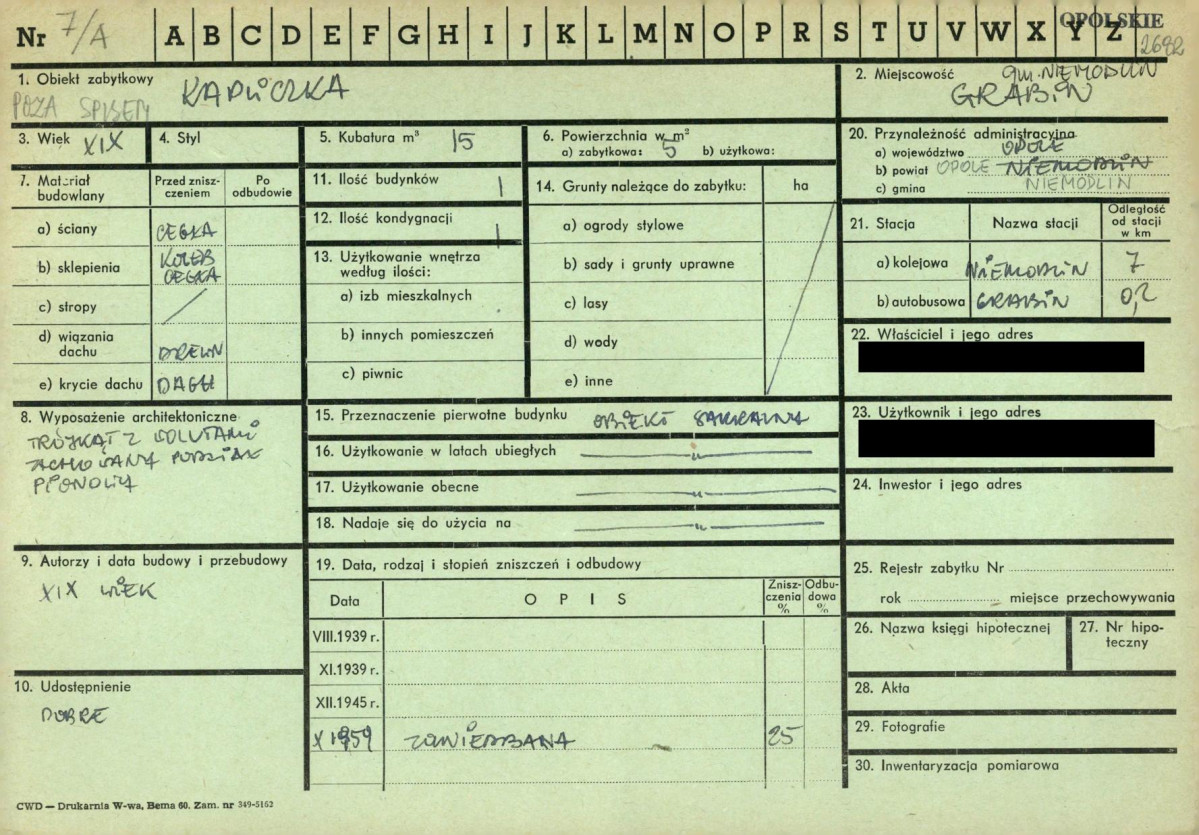 Nr 7/A A B C D E F G H I J K L M N O P R S T U V W X Y Z OPOLSKIE
2692
1. Obiekt zabytkowy KAPLICZKA
POZA SPISEM
2. Miejscowość gm. NIEMODLIN
GRABIN
3. Wiek XIX
4. Styl
5. Kubatura m³ 15
6. Powierzchnia w m²
a) zabytkowa: 5 b) użytkowa:
20. Przynależność administracyjna
a) województwo OPOLE
b) powiat OPOLE NIEMODLIN
c) gmina NIEMODLIN
7. Materiał budowlany
Przed zniszczeniem
Po odbudowie
a) ściany CEGŁA
b) sklepienia KOLEB CEGŁA
c) stropy
d) wiązania dachu DREWN
e) krycie dachu DACH
11. Ilość budynków 1
12. Ilość kondygnacji 1
13. Użytkowanie wnętrza według ilości:
a) izb mieszkalnych
b) innych pomieszczeń
c) piwnic
14. Grunty należące do zabytku: ha
a) ogrody stylowe
b) sady i grunty uprawne
c) lasy
d) wody
e) inne
21. Stacja Nazwa stacji Odległość od stacji w km
a) kolejowa NIEMODLIN 7
b) autobusowa GRABIN 0,2
22. Właściciel i jego adres
23. Użytkownik i jego adres
24. Inwestor i jego adres
8. Wyposażenie architektoniczne
TRÓJKĄT Z WOLUTAMI
ZACHOWANY PODZIAŁ
PIONOWY
15. Przeznaczenie pierwotne budynku OBIEKT SAKRALNY
16. Użytkowanie w latach ubiegłych — " —
17. Użytkowanie obecne — " —
18. Nadaje się do użycia na — " —
9. Autorzy i data budowy i przebudowy
XIX WIEK
19. Data, rodzaj i stopień zniszczeń i odbudowy
Data OPIS Zniszczenia % Odbudowa %
VIII.1939 r.
XI.1939 r.
XII.1945 r.
X 1959 ZANIEDBANA 25
10. Udostępnienie
DOBRE
25. Rejestr zabytku Nr
rok miejsce przechowywania
26. Nazwa księgi hipotecznej
27. Nr hipoteczny
28. Akta
29. Fotografie
30. Inwentaryzacja pomiarowa
CWD — Drukarnia W-wa, Bema 60. Zam. nr 349-5162